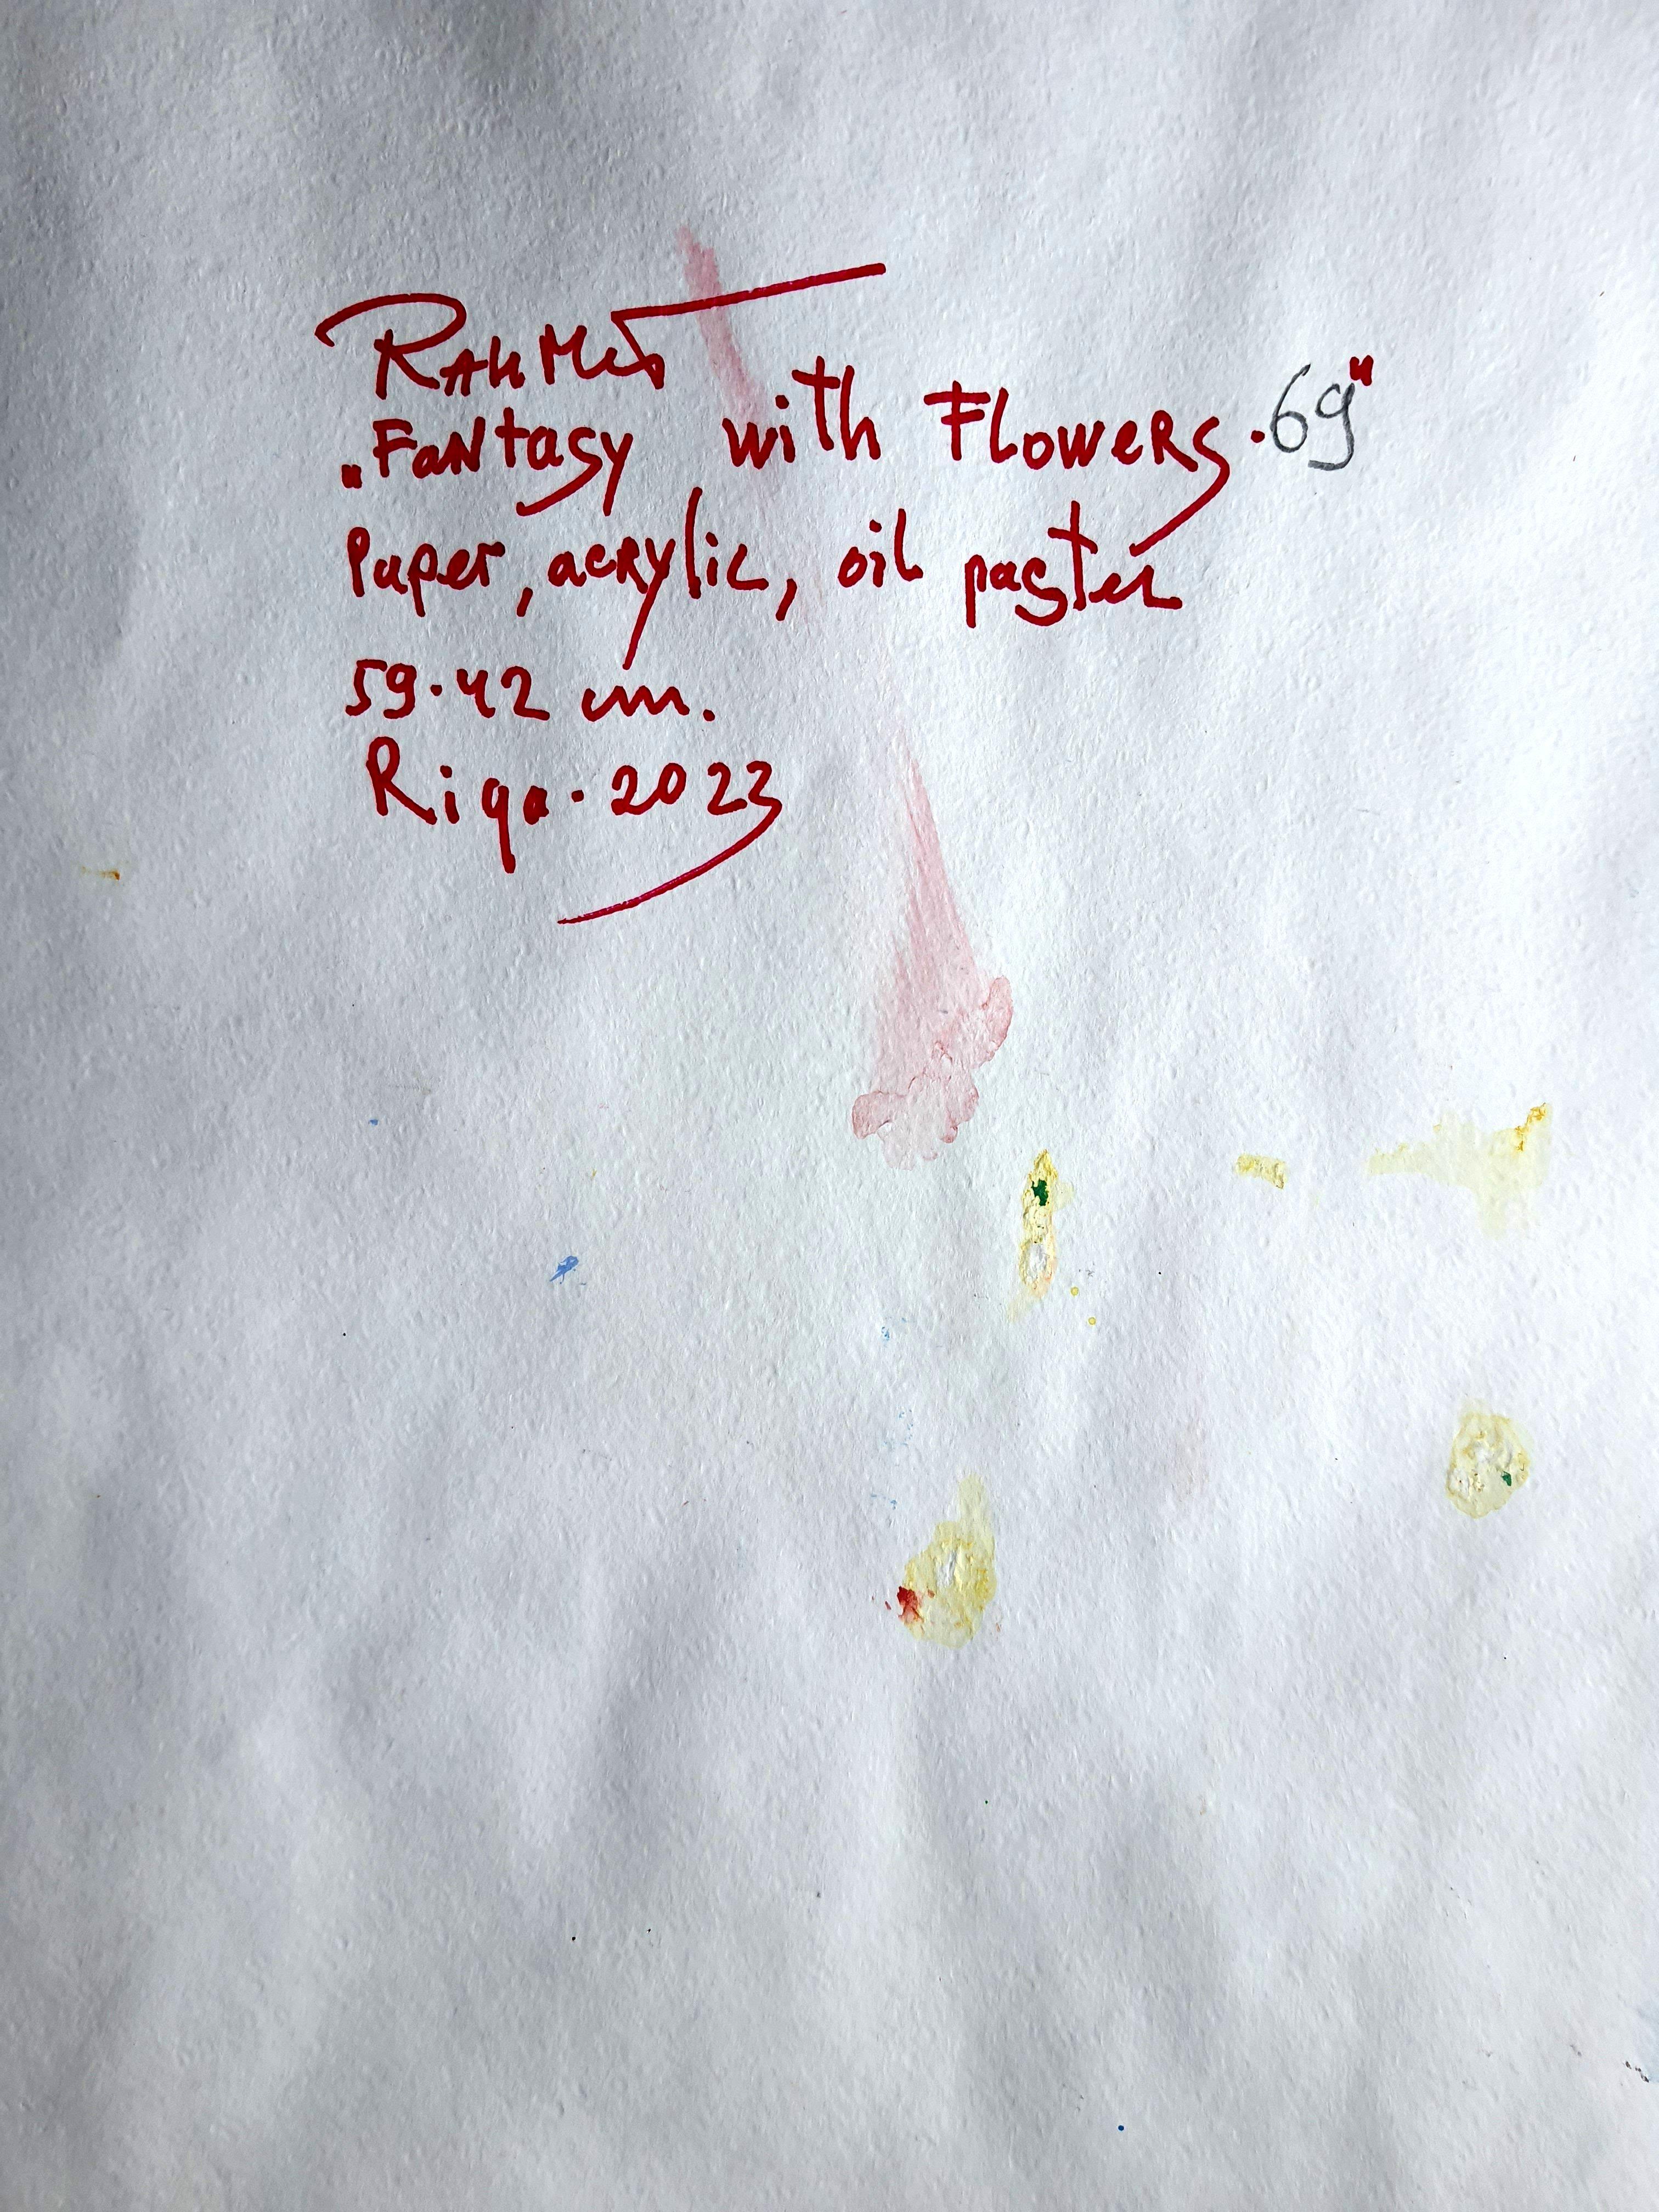 Rahmet
„Fantasy with Flowers.69"
Paper, acrylic, oil pastel
59.42 cm.
Riga.2023